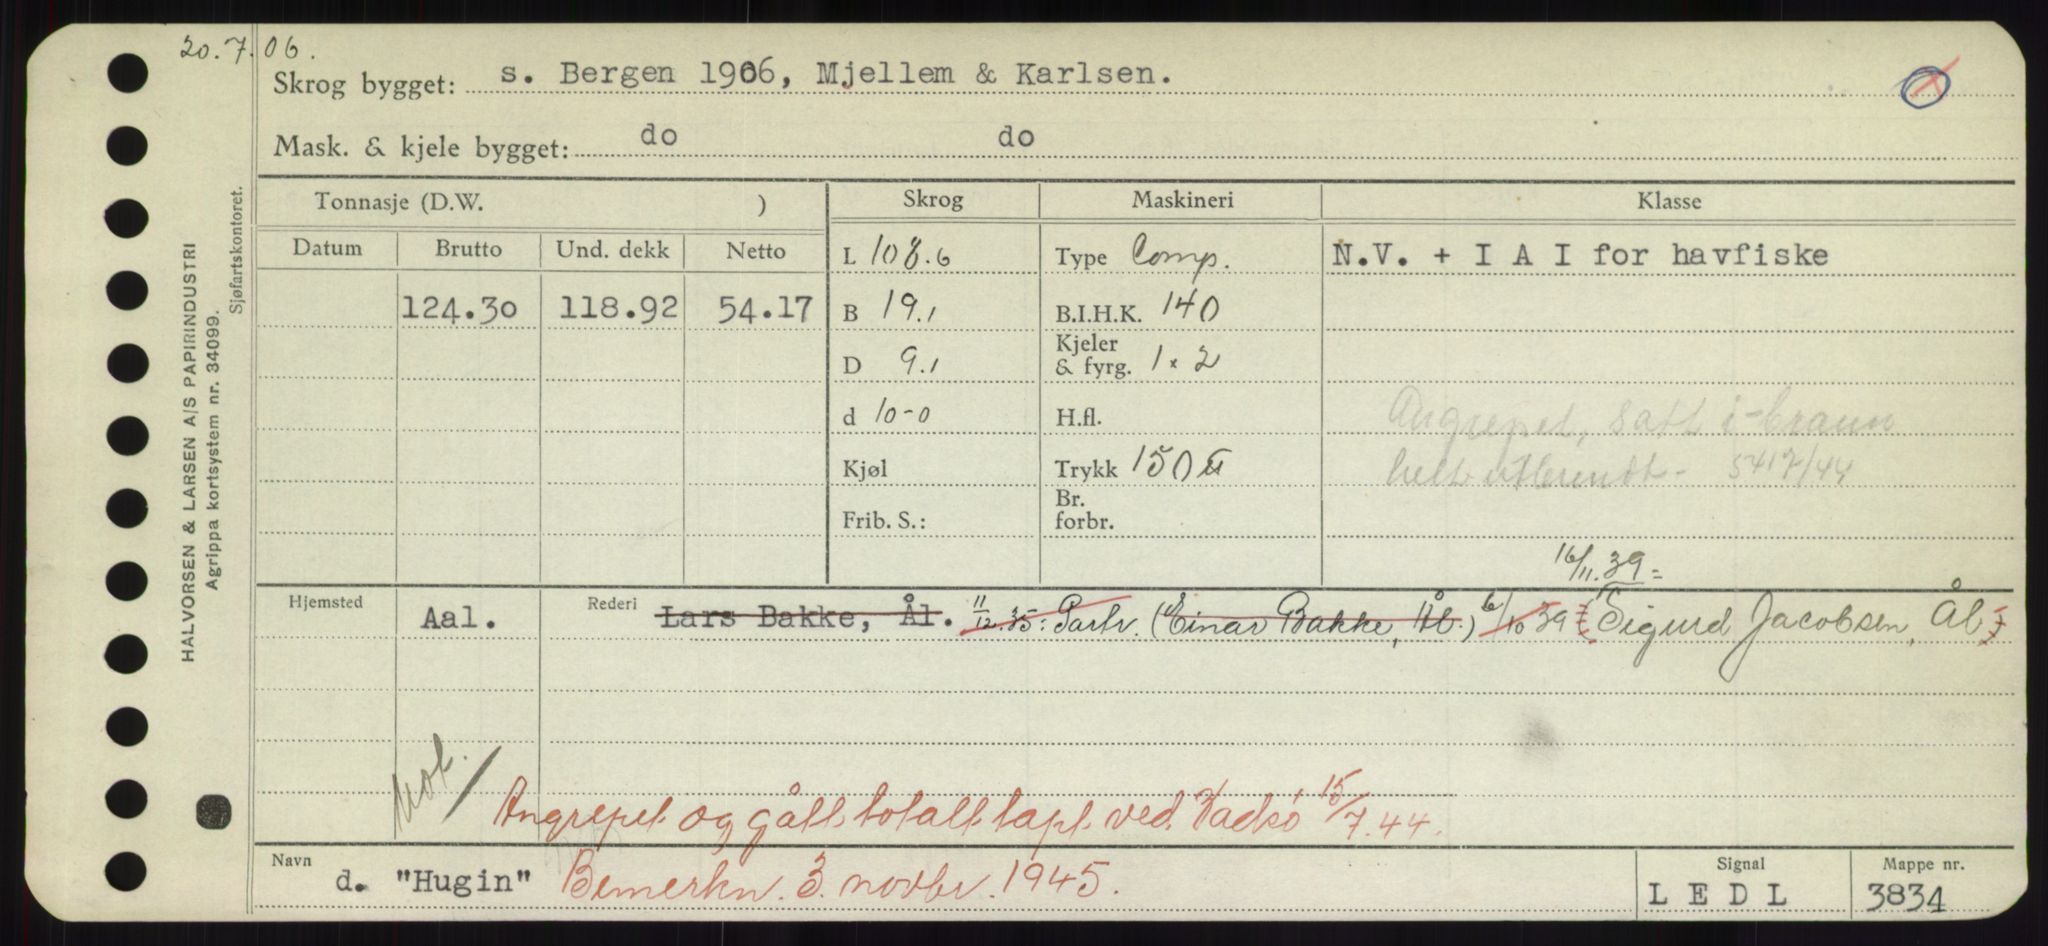 20.7.06.
Skrog bygget: s. Bergen 1906, Mjellem & Karlsen.
Mask. & kjele bygget: do do
HALVORSEN & LARSEN A/S PAPIRINDUSTRI
Agrippa kortsystem nr. 34099.
Sjøfartskontoret.
Tonnasje (D.W. ) Skrog Maskineri Klasse
Datum Brutto Und. dekk Netto L 108.6 Type Comp. N.V. + I A I for havfiske
124.30 118.92 54.17 B 19.1 B.I.H.K. 140
D 9.1 Kjeler & fyrg. 1 x 2
d 10-0 H.fl. Angrepet, satt i brann
Kjøl Trykk 150 helt utbrendt -
Frib. S.: Br. forbr.
16/11.39 =
Hjemsted Aal. Rederi Lars Bakke, Ål. 11/12.35: Partr. (Einar Bakke, Ål.) 6/10 39 (Sigurd Jacobsen, Ål)
Angrepet og gått totalt tapt ved Vadsø 15/7.44.
Navn d. "Hugin" Bemerkn. 3. novbr. 1945. Signal LEDL Mappe nr. 3834